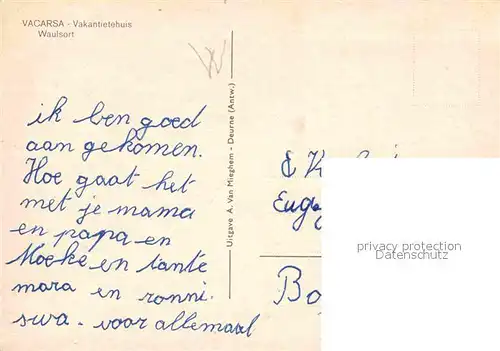 VACARSA - Vakantietehuis
Waulsort
ik ben goed
aan gekomen.
Hoe gaat het
met je mama
en papa en
Moeke en tante
mara en ronni.
swa - voor allemaal
Uitgave A. Van Mieghem - Deurne (Antw.)
E K
Eug
Bo
privacy protection
Datenschutz